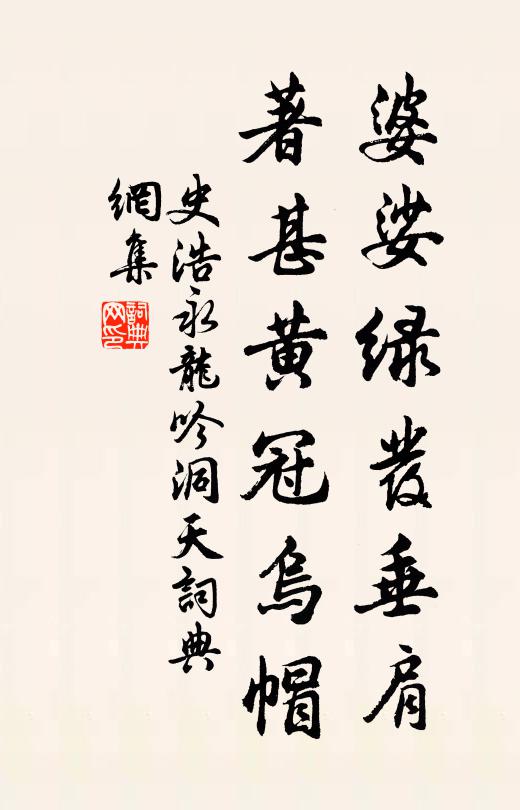 婆娑绿发垂肩
著甚黄冠乌帽
史浩永龍吟洞天詞典
網集
詞典
网印